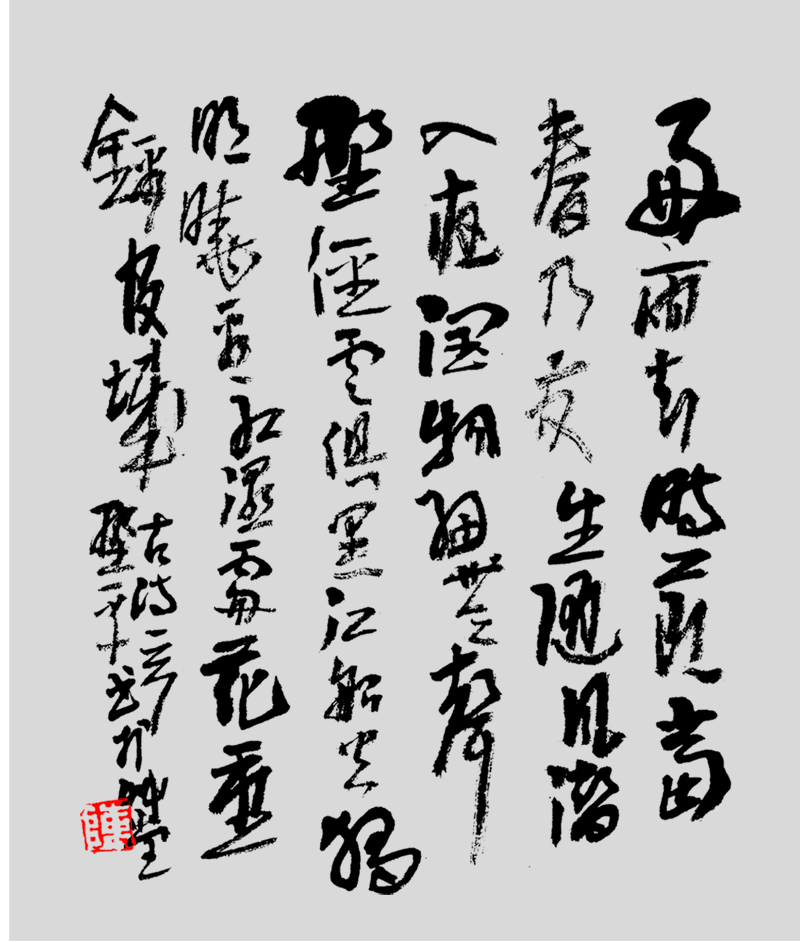 好雨知時節當
春乃發生隨風潛
入夜潤物細無聲
野徑雲俱黑江船火獨
明曉看紅濕處花重
錦官城
古詩一首